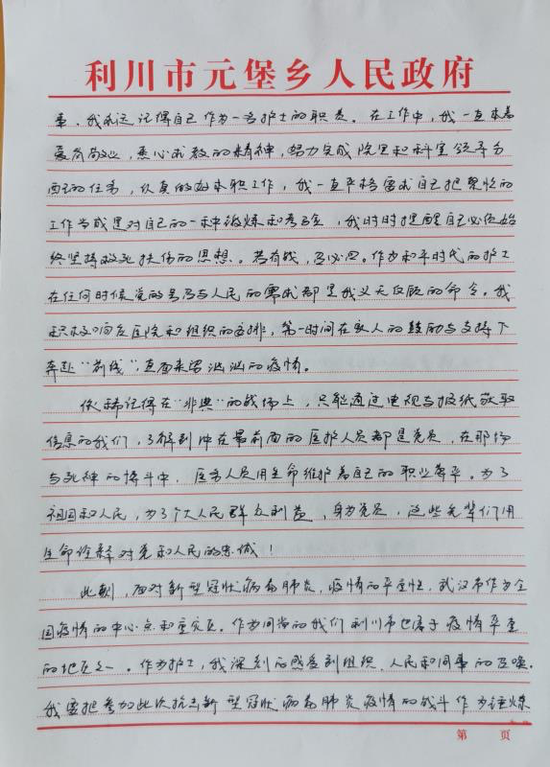 利川市元堡乡人民政府
事,我永远记得自己作为一名护士的职责。在工作中,我一直本着
爱岗敬业,悉心求教的精神,努力完成院里和科室领导分
配的任务,认真的做好本职工作,我一直严格要求自己把繁忙的
工作当成是对自己的一种锻炼和考验,我时时提醒自己必须始
终坚持救死扶伤的思想。若有战,召必回。作为和平时代的护士
在任何时候党的号召与人民的需求都是我义无反顾的命令。我
积极响应医院和组织的安排,第一时间在家人的鼓励与支持下
奔赴“前线”,直面来势汹汹的疫情。
依稀记得在“非典”的战场上,只能通过电视与报纸获取
信息的我们,了解到冲在最前面的医护人员都是党员,在那场
与死神的搏斗中,医务人员用生命维护着自己的职业尊严。为了
祖国和人民,为了个人民群众利益,身为党员,这些先辈们用
生命诠释对党和人民的忠诚!
此刻,面对新型冠状病毒肺炎,疫情的严重性,武汉市作为全
国疫情的中心点和重灾区。作为同省的我们利川市也属于疫情严重
的地区之一。作为护士,我深刻的感受到组织、人民和同事的召唤。
我要把参加此次抗击新型冠状病毒肺炎疫情的战斗作为锤炼
第 页